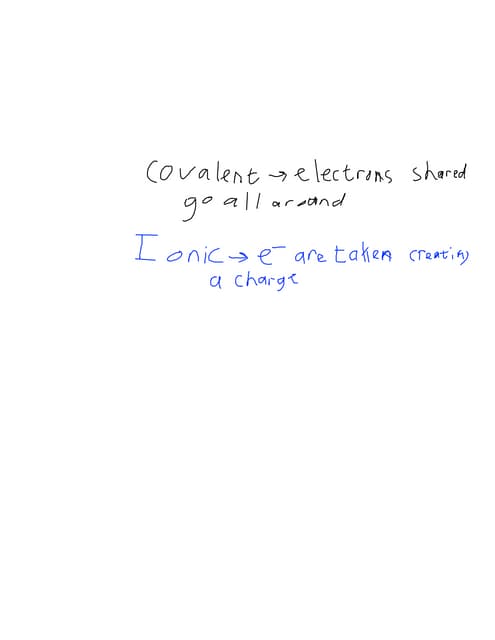 Covalent → electrons shared
go all around
Ionic → e⁻ are taken creating
a charge